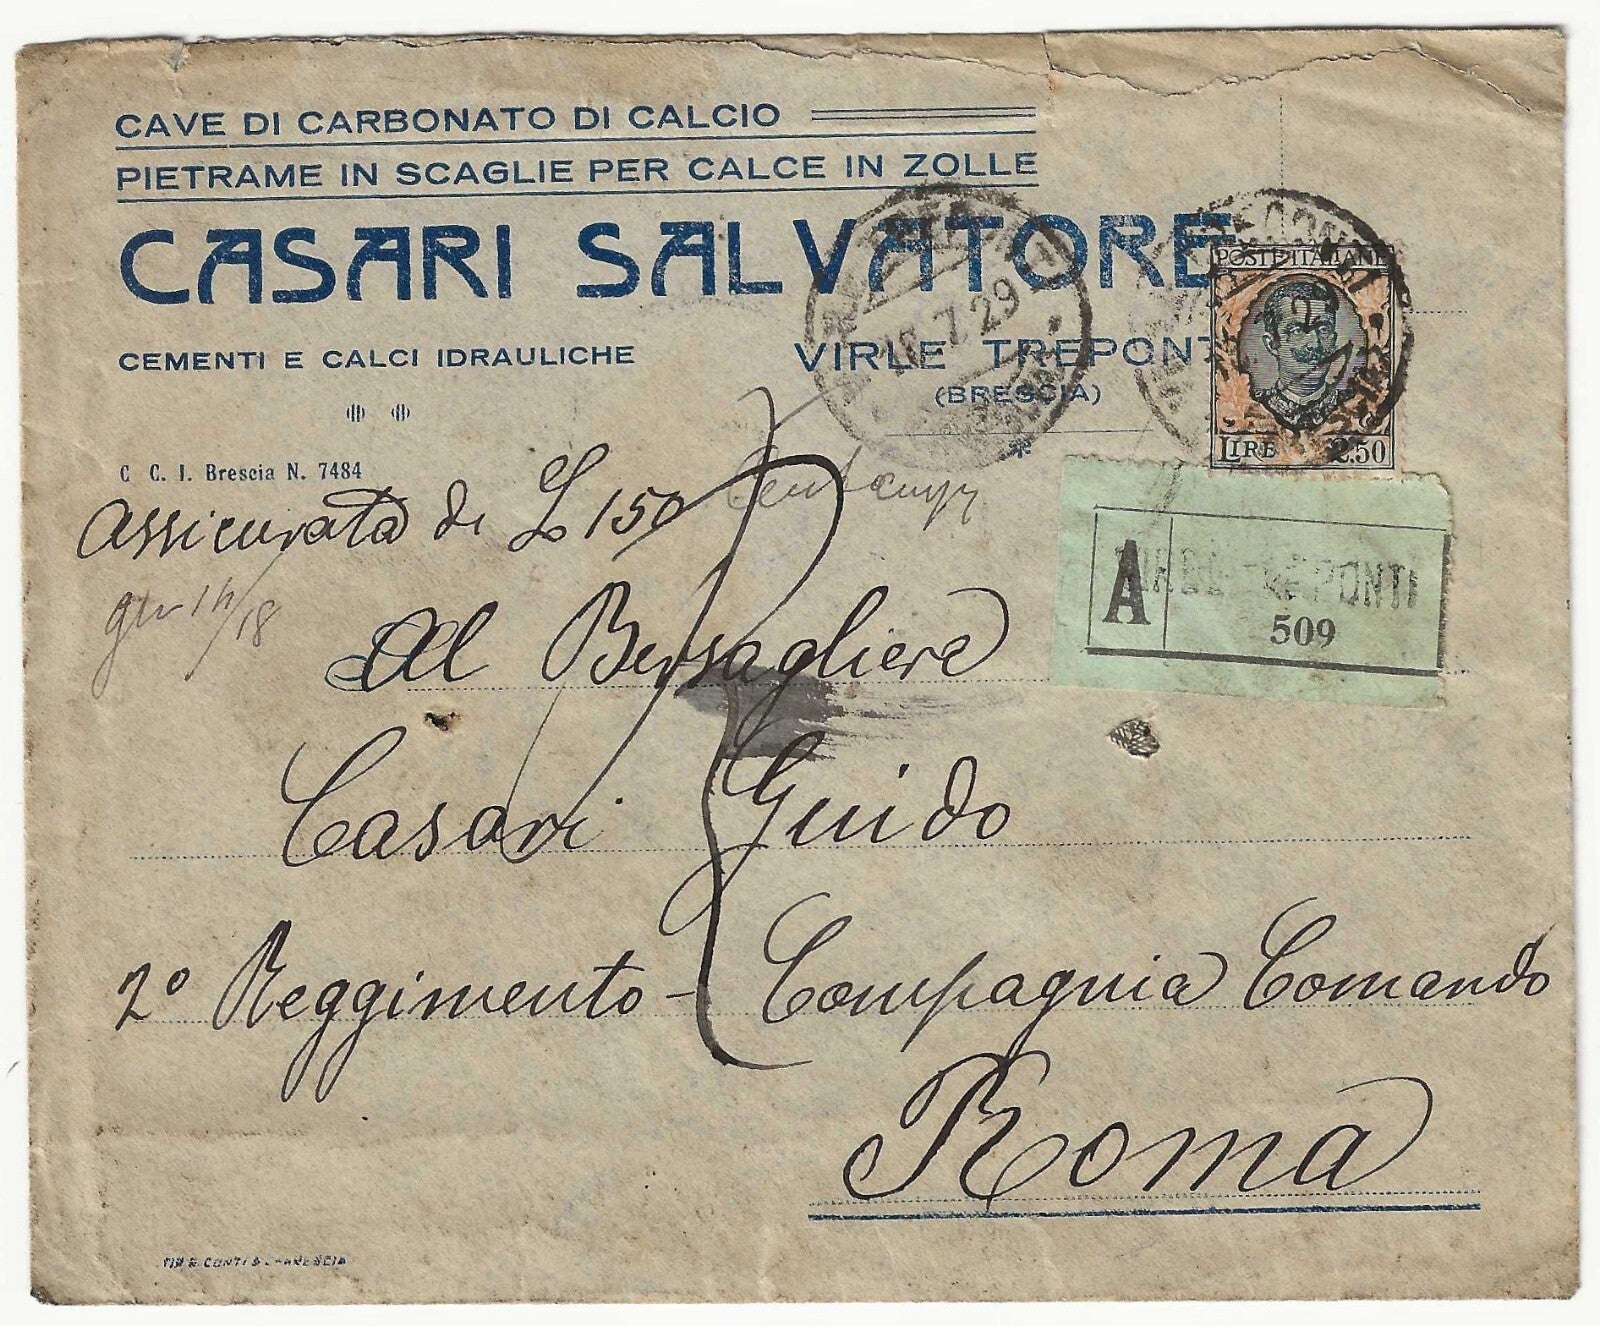 CAVE DI CARBONATO DI CALCIO
PIETRAME IN SCAGLIE PER CALCE IN ZOLLE
CASARI SALVATORE
CEMENTI E CALCI IDRAULICHE
VIRLE TREPONT
(BRESCIA)
C. C. I. Brescia N. 7484
7.29
POSTE ITALIANE
LIRE 2.50
Assicurata di L 150
A
PONTI
509
Al Bersagliere
Casari Guido
2° Reggimento - Compagnia Comando
Roma